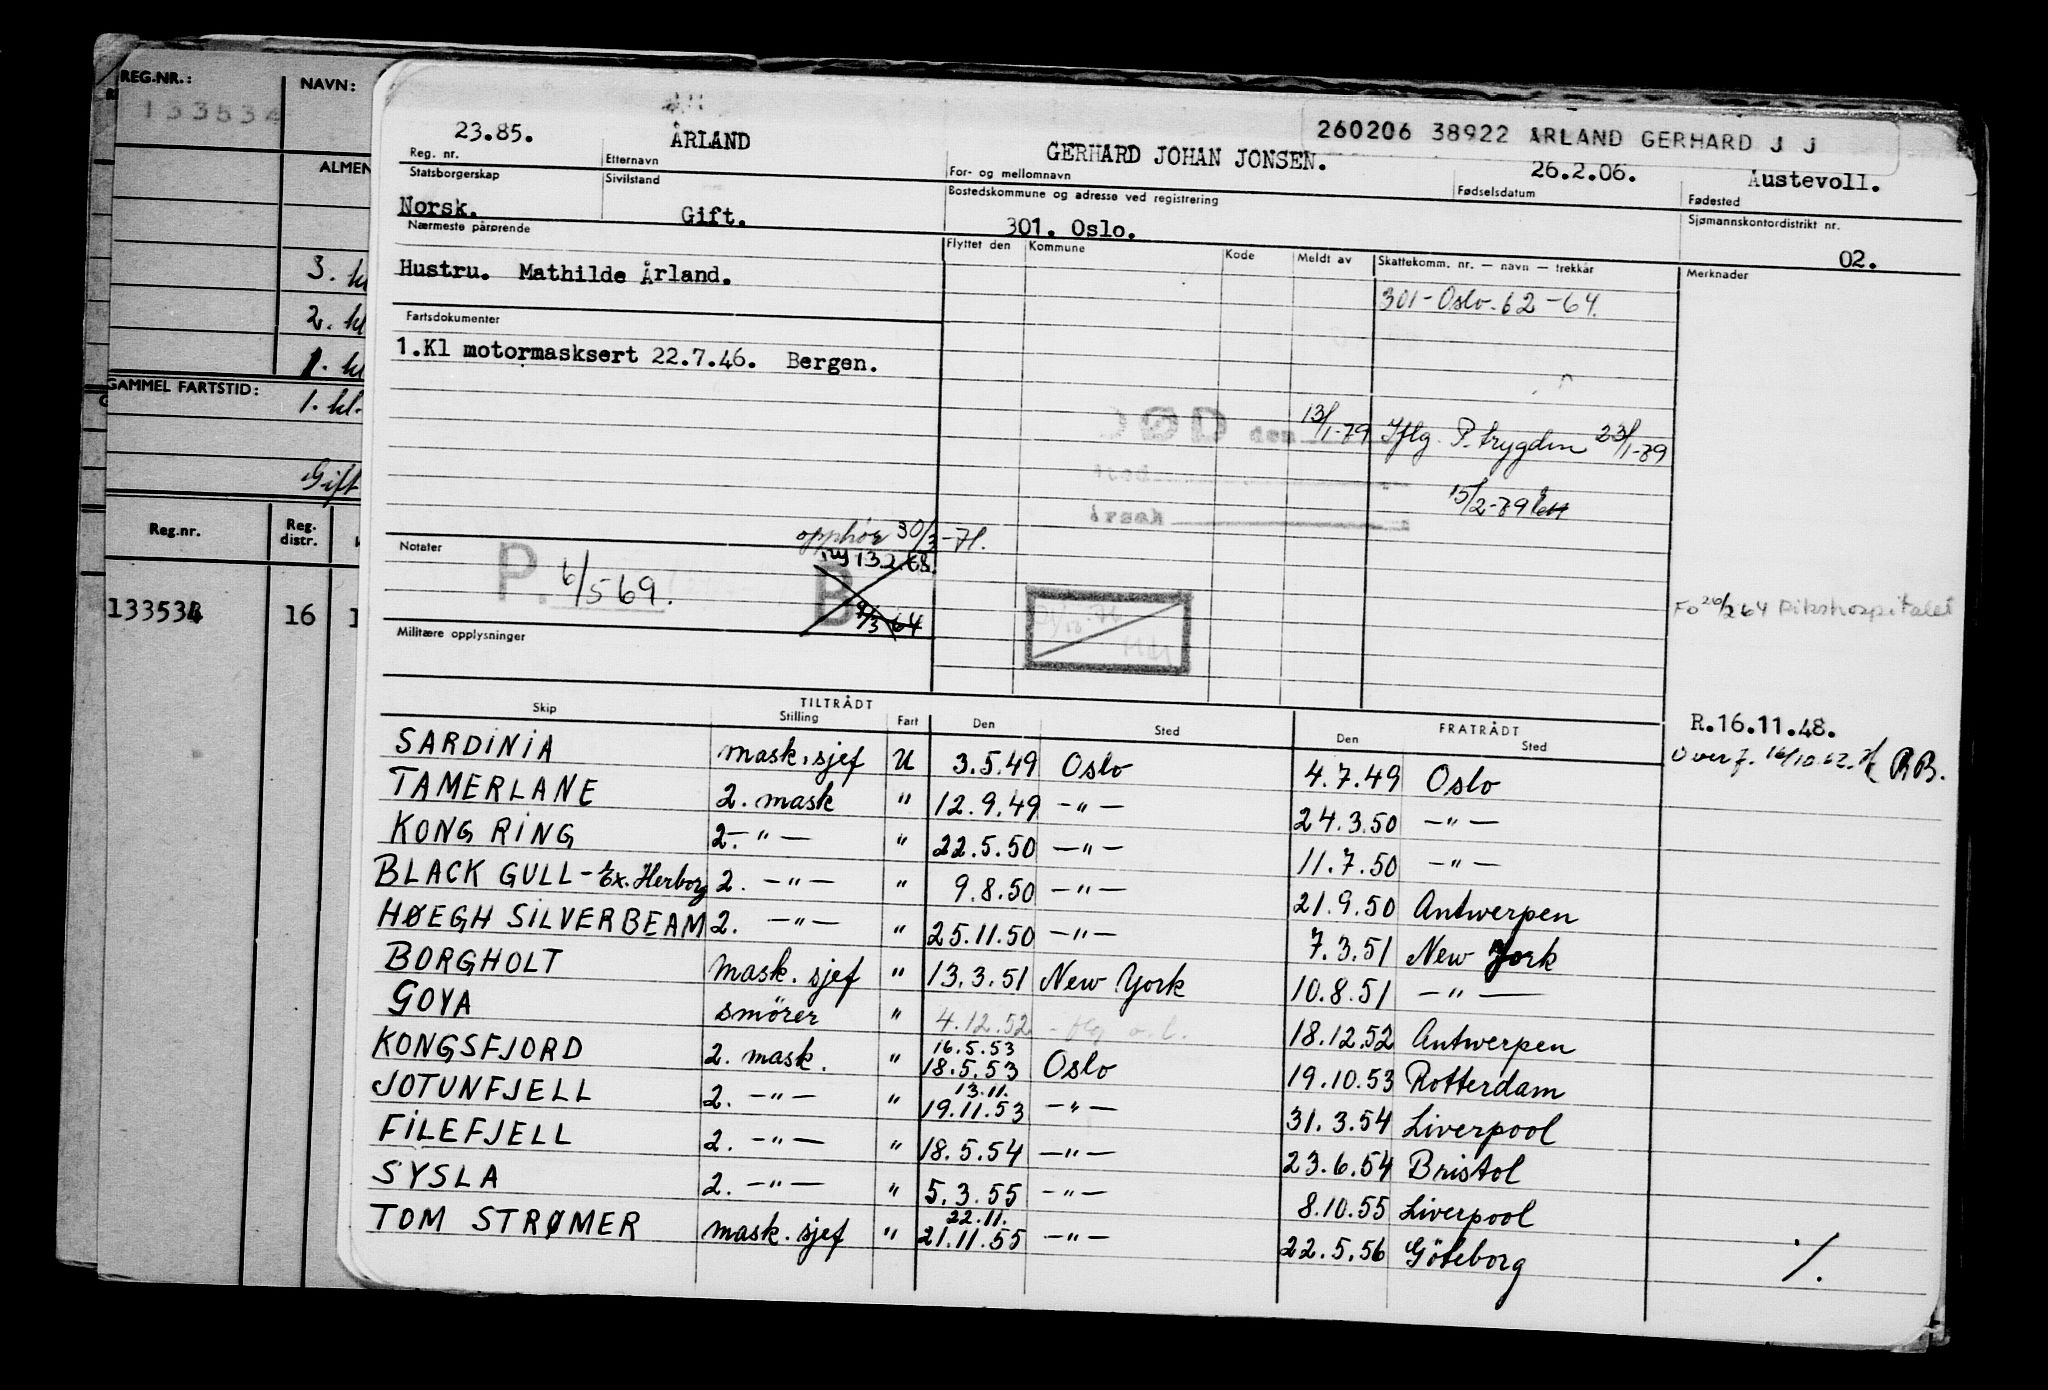 REG.NR.:
NAVN:
133534
ALMEN
3. kl
2. kl
1. kl
GAMMEL FARTSTID:
1. kl.
Gift
Reg.nr.
Reg. distr.
133534 16 1
260206 38922 ÅRLAND GERHARD J J
23.85. ÅRLAND GERHARD JOHAN JONSEN. 26.2.06. Austevoll.
Reg. nr. Etternavn For- og mellomnavn Fødselsdatum Fødested
Statsborgerskap Sivilstand Bostedskommune og adresse ved registrering Sjømannskontordistrikt nr.
Norsk. Gift. 301. Oslo. 02.
Nærmeste pårørende Flyttet den Kommune Kode Meldt av Skattekomm. nr. — navn — trekkår Merknader
Hustru. Mathilde Årland.
301-Oslo. 62-64.
Fartsdokumenter
1.Kl motormasksert 22.7.46. Bergen.
DØD den 13/1-79 Iflg. P. trygden 23/1-79
sted
15/2-79
årsak
opphør 30/3-71.
Notater
ny 13.2.68.
P. 6/5 69.
B
9/3 64
Fo 20/2 64 Rikshospitalet
Militære opplysninger
R.16.11.48.
Overf. 16/10.62. RB.
Skip TILTRÅDT FRATRÅDT
Stilling Fart Den Sted Den Sted
SARDINIA mask.sjef U 3.5.49 Oslo 4.7.49 Oslo
TAMERLANE 2. mask " 12.9.49 —"— 24.3.50 —"—
KONG RING 2.—"— " 22.5.50 —"— 11.7.50 —"—
BLACK GULL - Ex. Herborg 2. —"— " 9.8.50 —"— 21.9.50 Antwerpen
HØEGH SILVERBEAM 2. —"— " 25.11.50 —"— 7.3.51 New York
BORGHOLT mask. sjef " 13.3.51 New York 10.8.51 —"—
GOYA smörer " 4.12.52 18.12.52 Antwerpen
KONGSFJORD 2. mask. " 16.5.53 18.5.53 Oslo 19.10.53 Rotterdam
JOTUNFJELL 2. —"— " 13.11. 19.11.53 —"— 31.3.54 Liverpool
FILEFJELL 2. —"— " 18.5.54 —"— 23.6.54 Bristol
SYSLA 2. —"— " 5.3.55 —"— 8.10.55 Liverpool
TOM STRØMER mask. sjef " 22.11. 21.11.55 —"— 22.5.56 Göteborg
./.